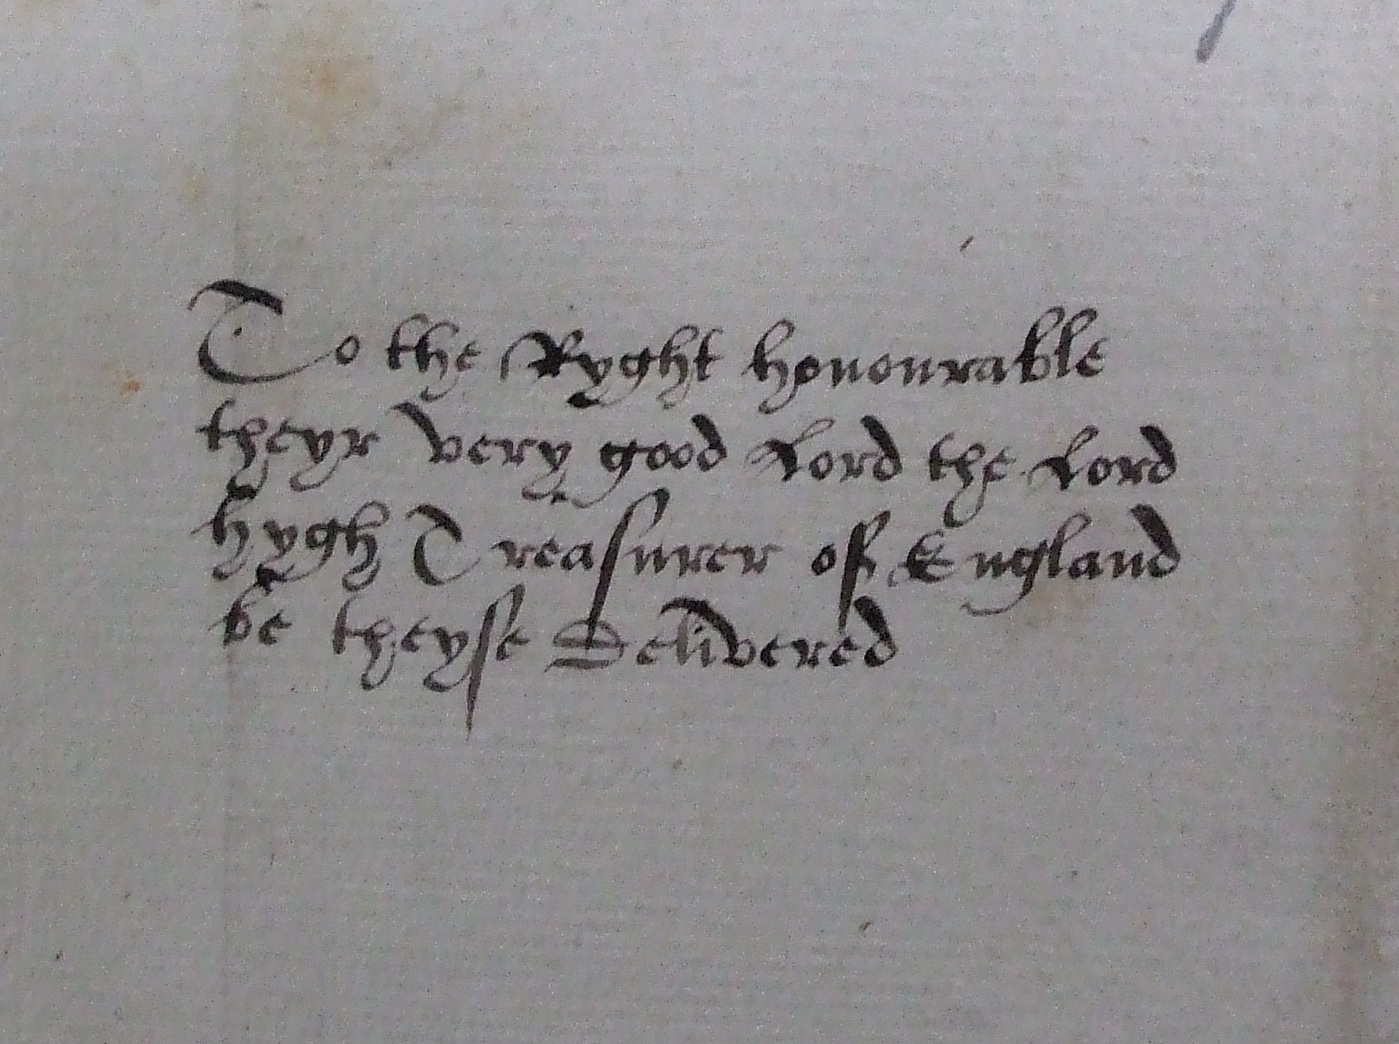 To the Ryght honourable
theyr very good Lord the Lord
hygh Treasurer of England
be theyse Delivered